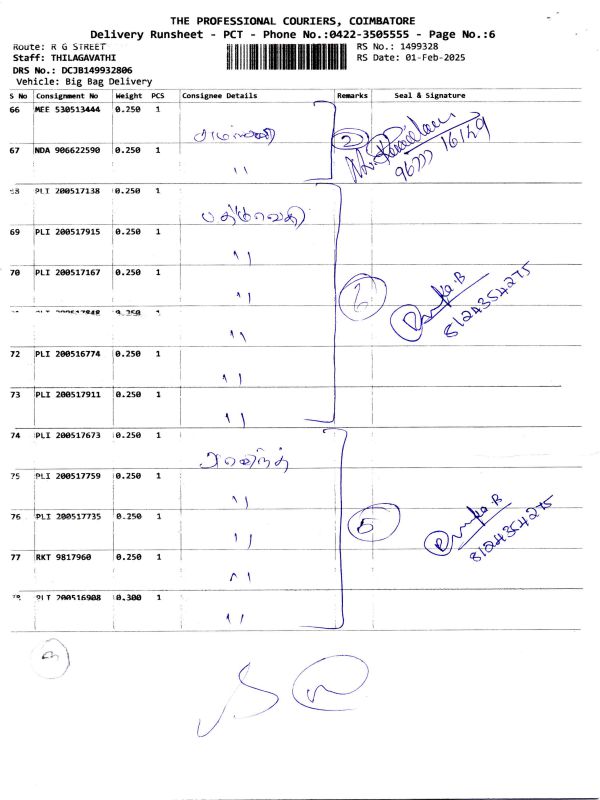 THE PROFESSIONAL COURIERS, COIMBATORE
Delivery Runsheet - PCT - Phone No.:0422-3505555 - Page No.:6
Route: R G STREET RS No.: 1499328
Staff: THILAGAVATHI RS Date: 01-Feb-2025
DRS No.: DCJB149932806
Vehicle: Big Bag Delivery
S No Consignment No Weight PCS Consignee Details Remarks Seal & Signature
66 MEE 530513444 0.250 1
2
67 NDA 906622590 0.250 1 ״
96777 16149
68 PLI 200517138 0.250 1
69 PLI 200517915 0.250 1 ״
70 PLI 200517167 0.250 1 ״
6
8124354275
0.250 1 ״
72 PLI 200516774 0.250 1 ״
73 PLI 200517911 0.250 1 ״
74 PLI 200517673 0.250 1
75 PLI 200517759 0.250 1 ״
76 PLI 200517735 0.250 1 ״
5
8124354275
77 RKT 9817960 0.250 1 ״
78 PLI 200516908 0.300 1 ״